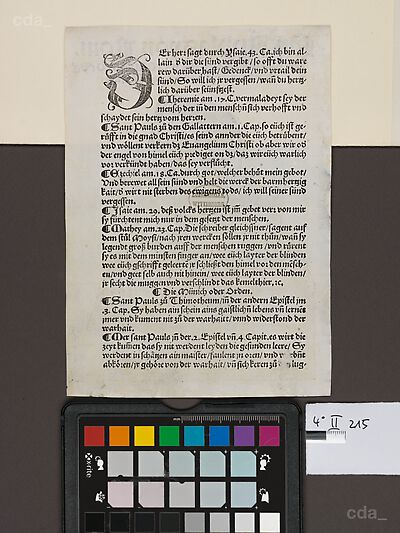 cda_
Er herr sagt durch Ysaie. 43. Ca. ich bin al-
lain d dir die sünd vergibt / so offt du ware
rew darüber hast / Gedenck / un urtail dein
sünd / So will ich jr vergessen / wan du hertz-
lich darüber seünfzest.
¶ Iheremie am .17. C. vermaladeyt sey der
mensch der in den menschn sich verhofft vnd
schaydet sein hertz vom herren.
¶ Sant Pauls zu den Gallattern am .1. Cap. so eüch ist ge-
rüfft in die gnad Christi / es seind ann der die eüch betrübent /
vnd wöllent verkern dz Euangelium Christi ob aber wir od
der engel von himel eüch prediget on dz / daz wir eüch warlich
vor verkündt haben / das sey verflücht.
¶ Ezechiel am .18. Ca. durch got / welcher behüt mein gebot /
Vnd berewet all sein sünd vnd helt die werck der barmhertzig
kait / d wirt nit sterben des ewigens tods / ich will seiner sünd
vergessen.
¶ Isaie am .29. deß volcks hertzen ist jm gebet verr von mir
sy fürchtent mich nur in dem gesetz der menschen.
¶ Mathey am .23. Cap. Die schreiber gleichßner / sagent auf
dem stul Moysi / nach jren wercken söllen jr nit thun / wan sy
legend groß birden auff der menschen ruggen / vnd rürent
sy es mit dem minsten finger an / wee eüch layter der blinden
wee eüch gschrifft geleert jr schließt den himel vor den mensch-
en / vnd geet selb auch nit hinein / wee eüch layter der blinden /
jr secht die muggen vnd verschlindt das kemelthier / zc.
¶ Die Münich oder Orden.
¶ Sant Pauls zu Thimotheum / jn der andern Epistel jm
.3. Cap. Sy haben ain schein ains gaistlichn lebens vn lernet
jmer vnd kument nit zu der warhait / vnnd widerstond der
warhait.
¶ Mer sant Pauls jn der .2. Epistel vn .4. Capit. es wirt die
zeyt kumen das sy nit werdent leyden die gesunden leere / Sy
werdent in schätzen ain maister / faulent jn oren / vnd
abkören / jr gehöre von der warhait / vn sich keren zu
x-rite
4° II 215
cda_